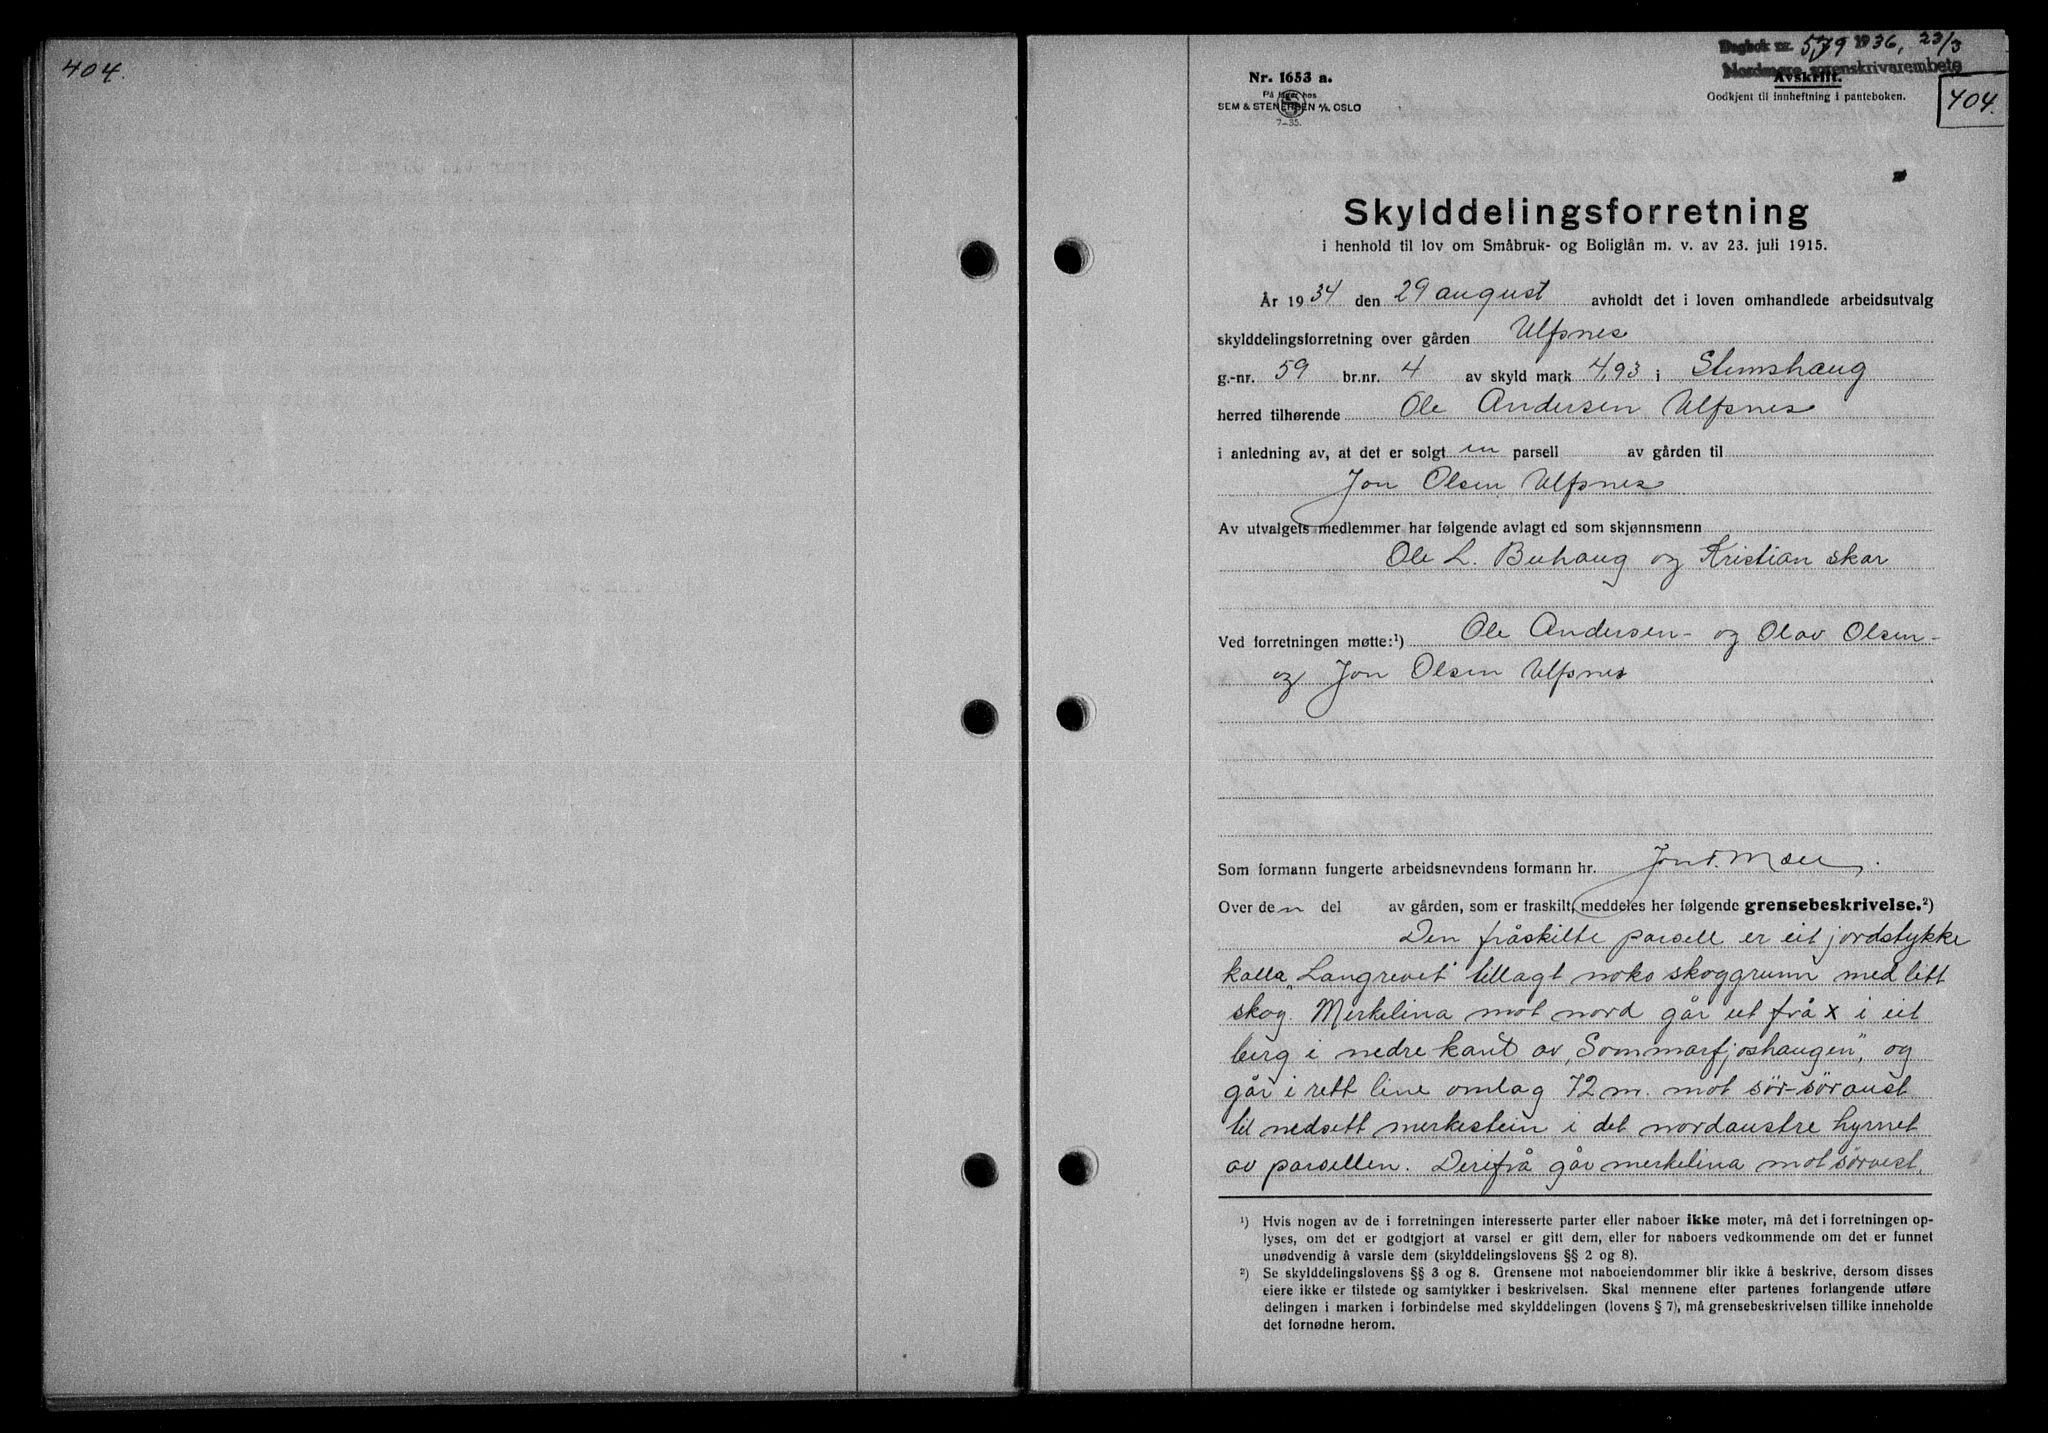 404.
Dagbok nr. 579 1936, 23/3
Nordmøre sorenskrivarembete
Nr. 1653 a.
Avskrift.
På lager hos
SEM & STENERSEN A/S OSLO
Godkjent til innheftning i panteboken.
404.
7-35.
Skylddelingsforretning
i henhold til lov om Småbruk- og Boliglån m. v. av 23. juli 1915.
År 1934 den 29 august avholdt det i loven omhandlede arbeidsutvalg
skylddelingsforretning over gården Ulfsnes
g.-nr. 59 br.nr. 4 av skyld mark 4,93 i Stemshaug
herred tilhørende Ole Andersen Ulfsnes
i anledning av, at det er solgt en parsell av gården til
Jon Olsen Ulfsnes
Av utvalgets medlemmer har følgende avlagt ed som skjønnsmenn
Ole L. Buhaug og Kristian Skar
Ved forretningen møtte:¹) Ole Andersen- og Olav Olsen-
og Jon Olsen Ulfsnes
Som formann fungerte arbeidsnevndens formann hr. Jon T. Mœu.
Over den del av gården, som er fraskilt, meddeles her følgende grensebeskrivelse.²)
Den fråskilte parsell er eit jordstykke
kalla „Langrevet" tillagt noko skoggrunn med litt
skog. Merkelina mot nord går ut frå x i eit
berg i nedre kant av „Sommarfjoshaugen", og
går i rett line omlag 72 m. mot sør-søraust
til nedsett merkestein i det nordaustre hyrnet
av parsellen. Derifrå går merkelina mot sørvest,
¹) Hvis nogen av de i forretningen interesserte parter eller naboer ikke møter, må det i forretningen op-
lyses, om det er godtgjort at varsel er gitt dem, eller for naboers vedkommende om det er funnet
unødvendig å varsle dem (skylddelingslovens §§ 2 og 8).
²) Se skylddelingslovens §§ 3 og 8. Grensene mot naboeiendommer blir ikke å beskrive, dersom disses
eiere ikke er tilstede og samtykker i beskrivelsen. Skal mennene efter partenes forlangende utføre
delingen i marken i forbindelse med skylddelingen (lovens § 7), må grensebeskrivelsen tillike inneholde
det fornødne herom.